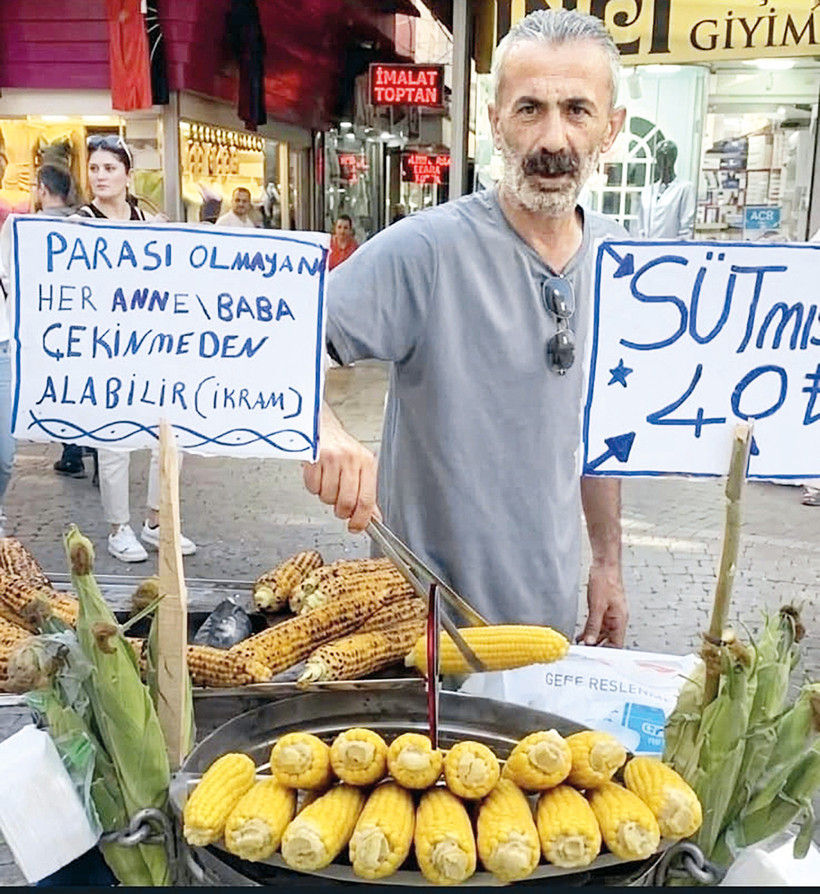 GİYİM
İMALAT
TOPTAN
PARASI OLMAYAN
HER ANNE\BABA
ÇEKİNMEDEN
ALABİLİR (İKRAM)
SÜTMIS
40₺
ACB